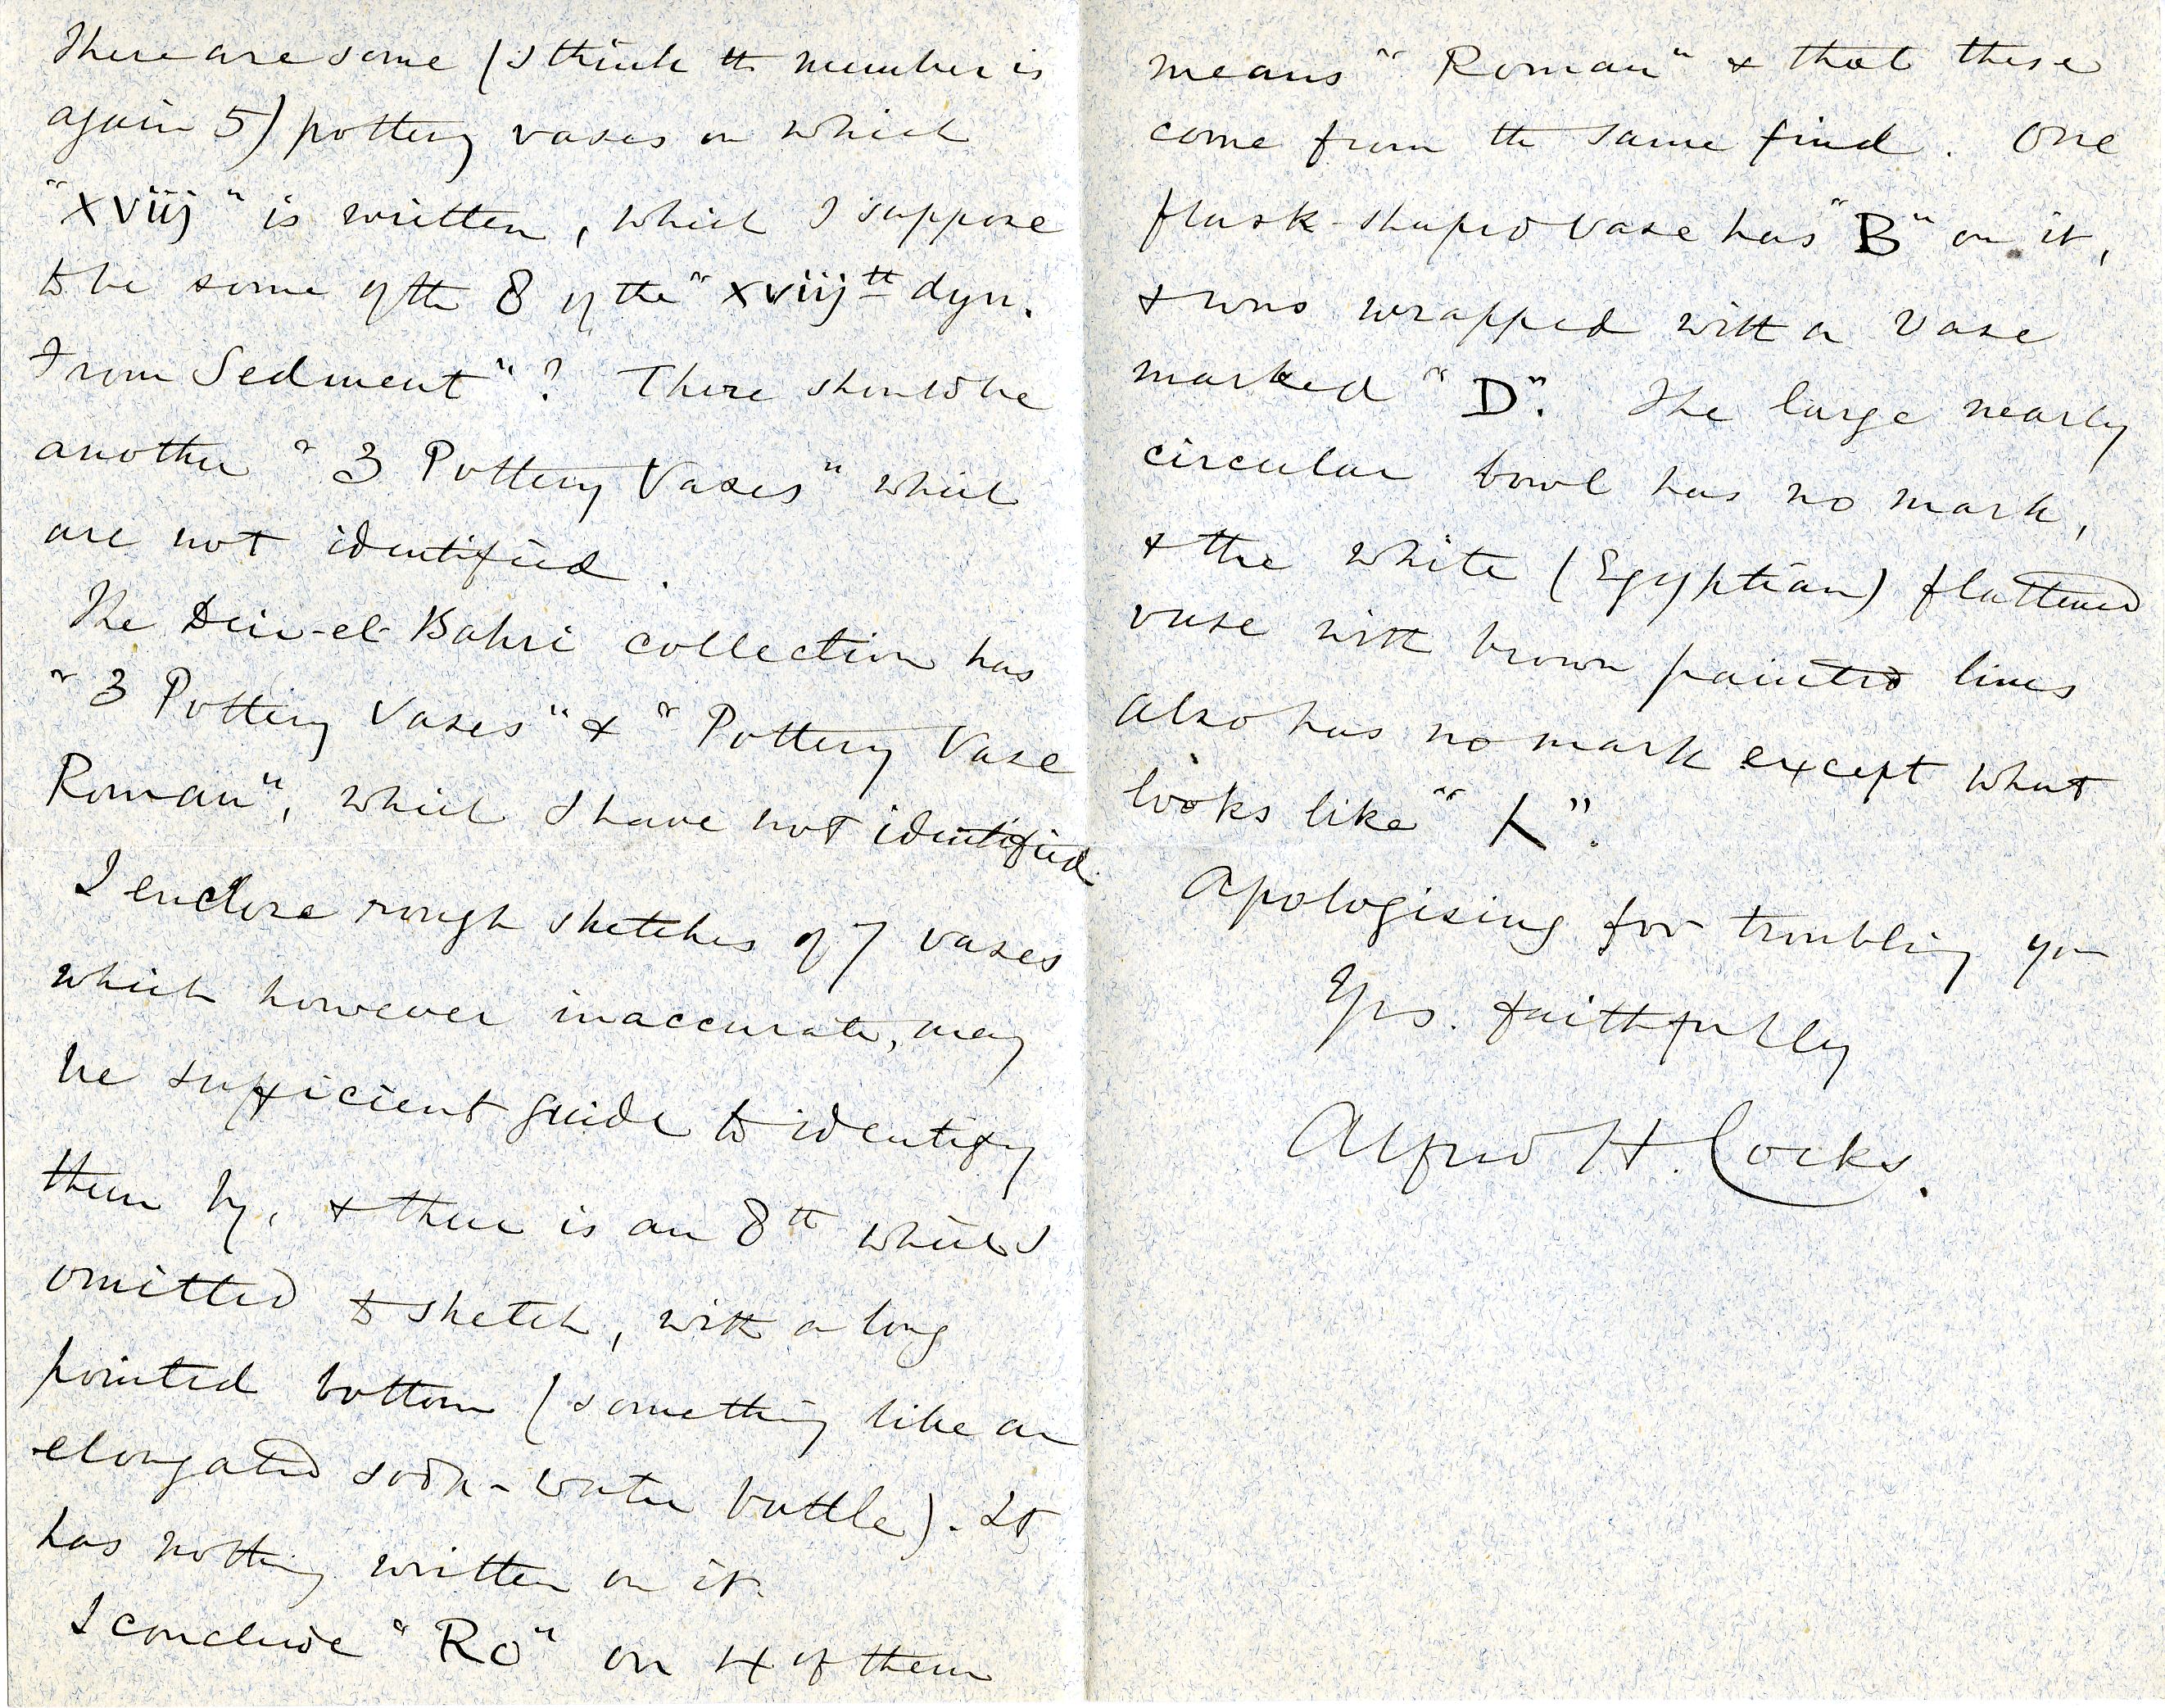 There are some (I think the number is
again 5) pottery vases on which
"xviij" is written, which I suppose
to be some of the 8 of the "xviijth dyn.
From Sedment"? There should be
another "3 Pottery Vases" which
are not identified.
The Deir-el-Bahri collection has
"3 Pottery Vases" & "Pottery Vase
Roman", which I have not identified.
I enclose rough sketches of 7 vases
which however inaccurate, may
be sufficient guide to identify
them by, & there is an 8th which I
omitted to sketch, with a long
pointed bottom (something like an
elongated soda-water bottle). It
has nothing written on it.
I conclude "Ro" on 4 of them
means "Roman" & that these
come from the same find. One
flask-shaped vase has "B" on it,
& was wrapped with a vase
marked "D". The large nearly
circular bowl has no mark,
& the white (Egyptian) flattened
vase with brown painted lines
also has no mark except what
looks like "⅄".
Apologising for troubling you
Yrs. faithfully
Alfred H. Cocks.